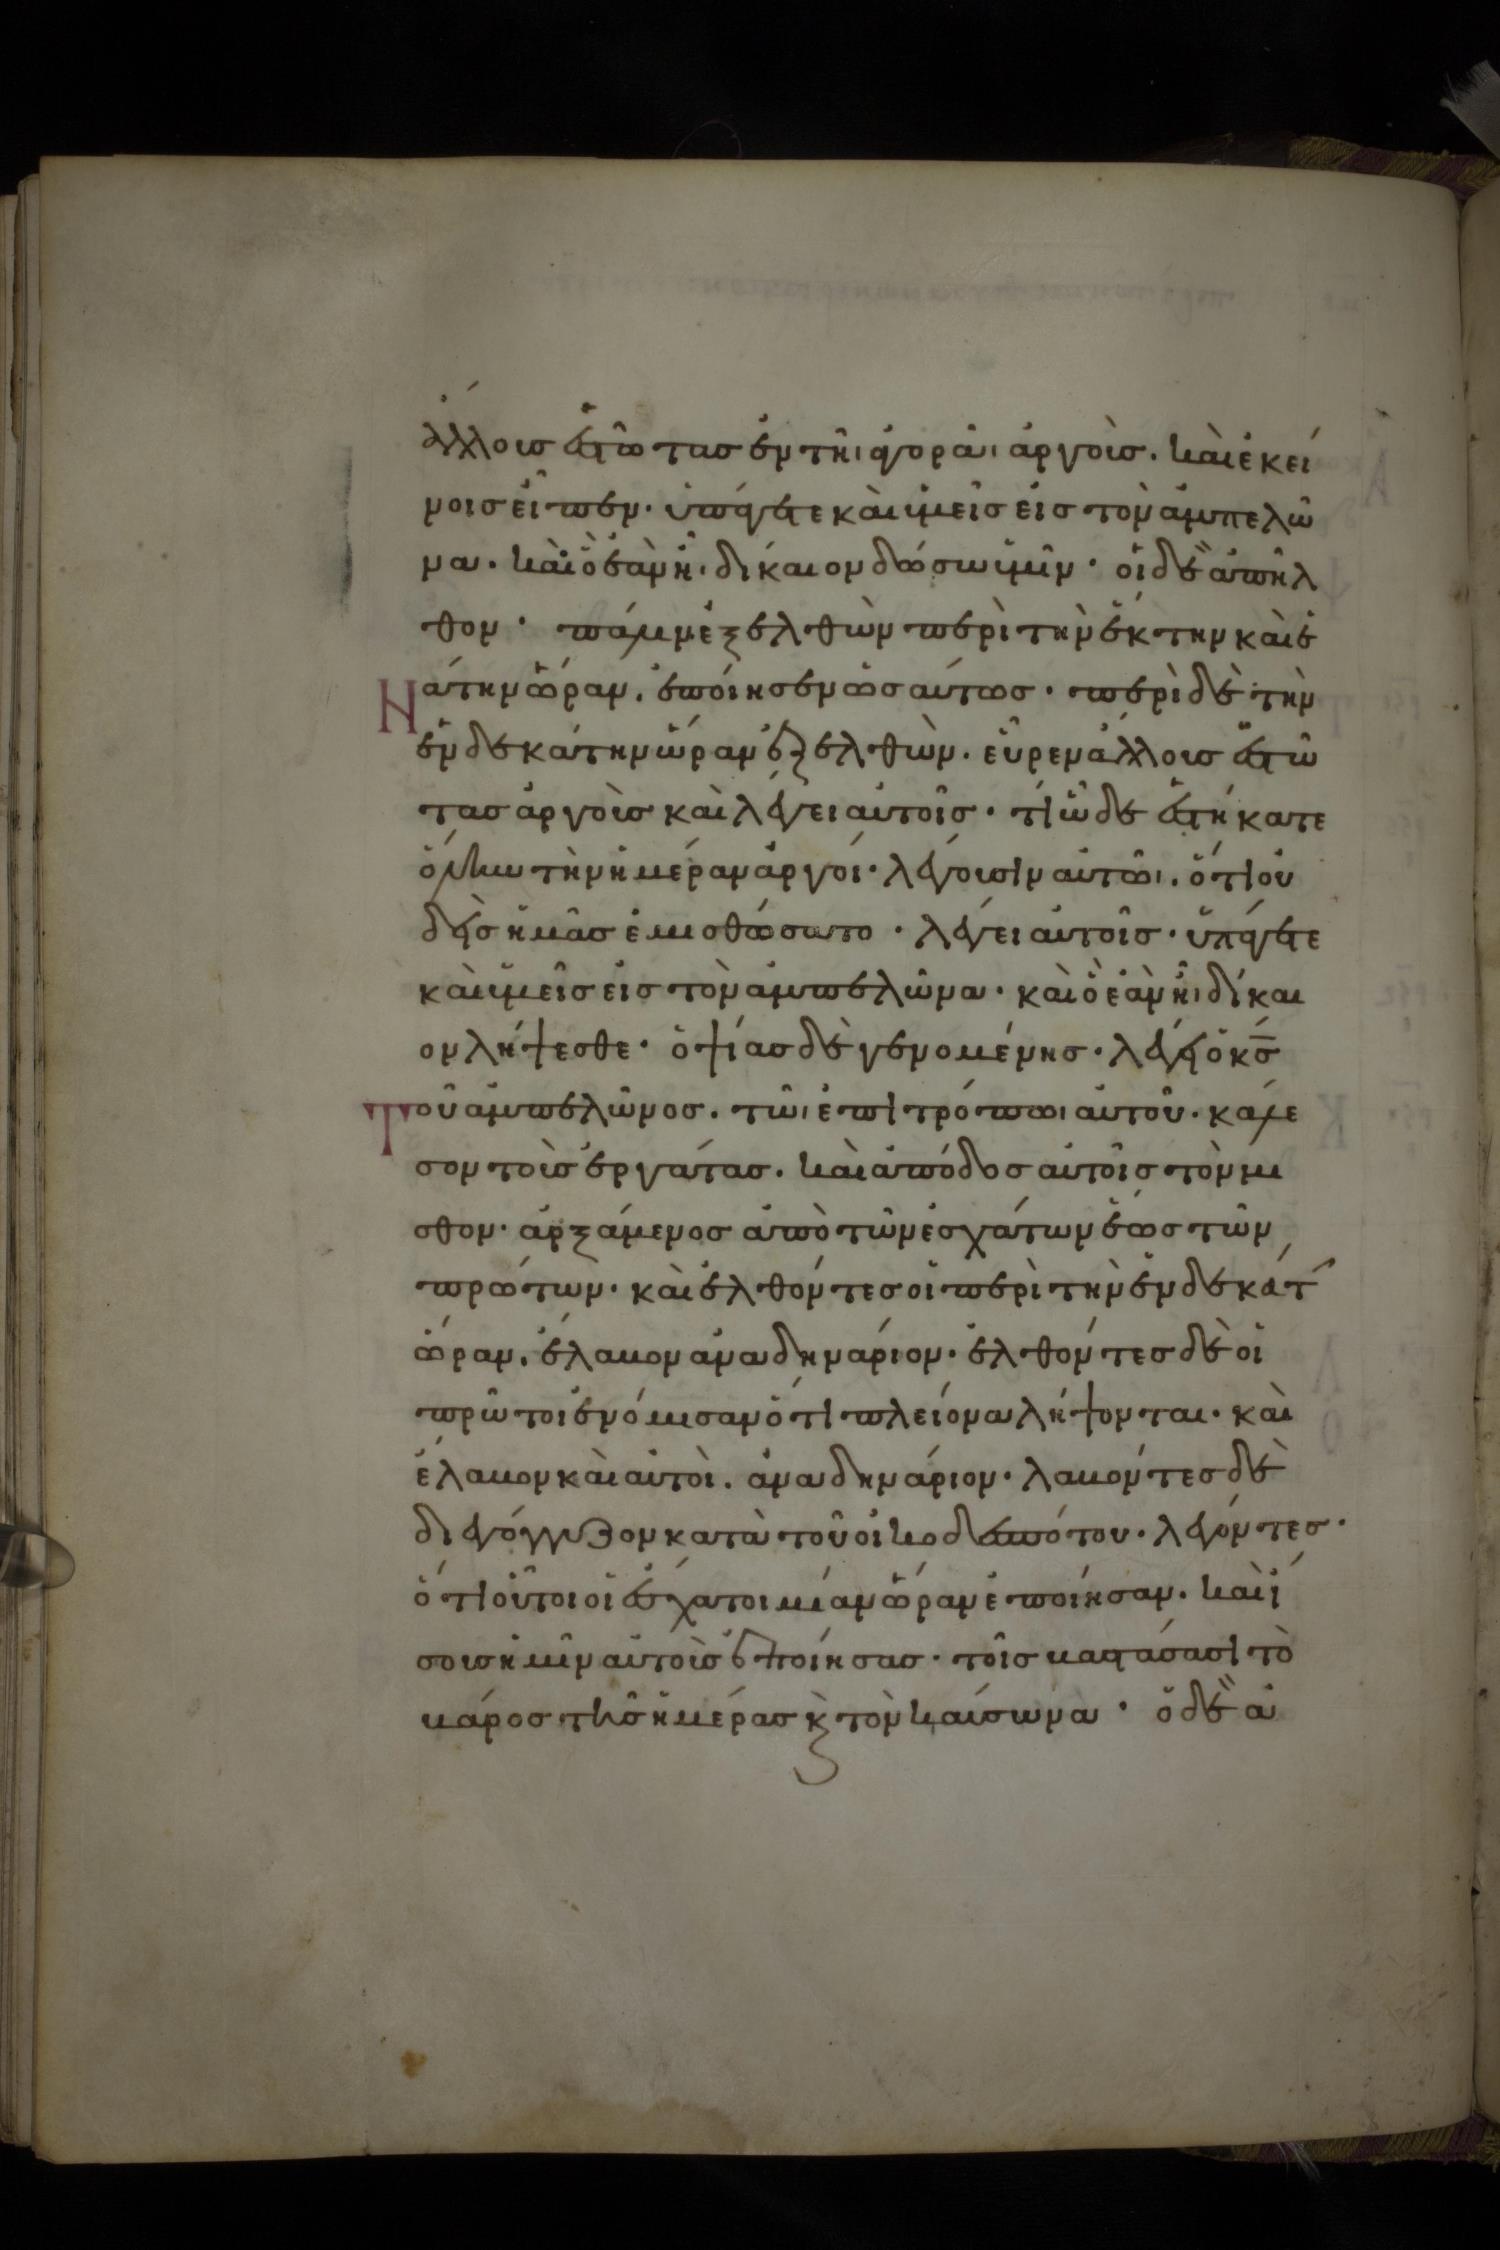 ἄλλους ἑστῶτας ἐν τῆι ἀγορᾶι ἀργοὺς. καὶ ἐκεί
νοις εἶπεν· ὑπάγετε καὶ ὑμεῖς εἰς τὸν ἀμπελῶ
να. καὶ ὃ ἐὰν ἦι δίκαιον δώσω ὑμῖν· οἱ δὲ ἀπῆλ
θον· πάλιν ἐξελθὼν περὶ τὴν ἕκτην καὶ ἐ
Νάτην ὥραν. ἐποίησεν ὡσαύτως· περὶ δὲ τὴν
ἑνδεκάτην ὥραν ἐξελθὼν. εὗρεν ἄλλους ἑστῶ
τας ἀργοὺς καὶ λέγει αὐτοῖς· τί ὧδε ἑστήκατε
ὅλην τὴν ἡμέραν ἀργοί· λέγουσιν αὐτῶι. ὅτι οὐ
δεὶς ἡμᾶς ἐμισθώσατο· λέγει αὐτοῖς· ὑπάγετε
καὶ ὑμεῖς εἰς τὸν ἀμπελῶνα· καὶ ὃ ἐὰν ἦι δίκαι
ον λήψεσθε· ὀψίας δὲ γενομένης· λέγει ὁ κς
Τοῦ ἀμπελῶνος. τῶι ἐπιτρόπωι αὐτοῦ· κάλε
σον τοὺς ἐργάτας. καὶ ἀπόδος αὐτοῖς τὸν μι
σθον· ἀρξάμενος ἀπὸ τῶν ἐσχάτων ἕως τῶν
πρώτων· καὶ ἐλθόντες οἱ περὶ τὴν ἑνδεκάτ
ὥραν. ἔλαβον ἀνα δηνάριον· ἐλθόντες δὲ οἱ
πρῶτοι ἐνόμισαν ὅτι πλείονα λήψονται· καὶ
ἔλαβον καὶ αὐτοὶ. ἀνα δηνάριον· λαβόντες δὲ
διεγόγγυζον κατὰ τοῦ οἰκοδεσπότου· λέγοντες·
ὅτι οὗτοι οἱ ἔσχατοι μίαν ὥραν ἐποίησαν. καὶ ἴ
σους ἡμῖν αὐτοὺς ἐποίησας· τοῖς βαστάσασι τὸ
βάρος τῆς ἡμέρας κ̀ τὸν καύσωνα· ὁ δὲ ἀ